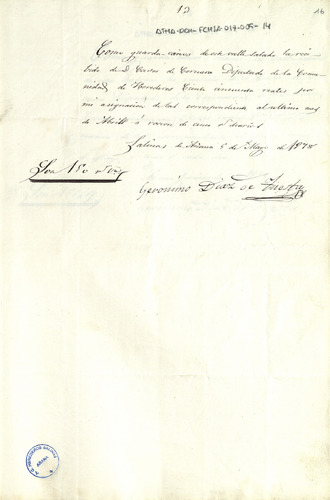 13
16
ATHA-DAH-FCMSA-017-005-14
Como guarda-caños de este valle salado he reci-
bido de D. Carlos de Tornero Diputado de la Comu-
nidad de Herederos Ciento cincuenta reales por
mi asignacion de tal correspondiente al ultimo mes
de Abril á razon de cinco rs diarios
Salinas de Añana 5 de Mayo de 1878
Son 150 rs
Geronimo Diaz de
AÑANA